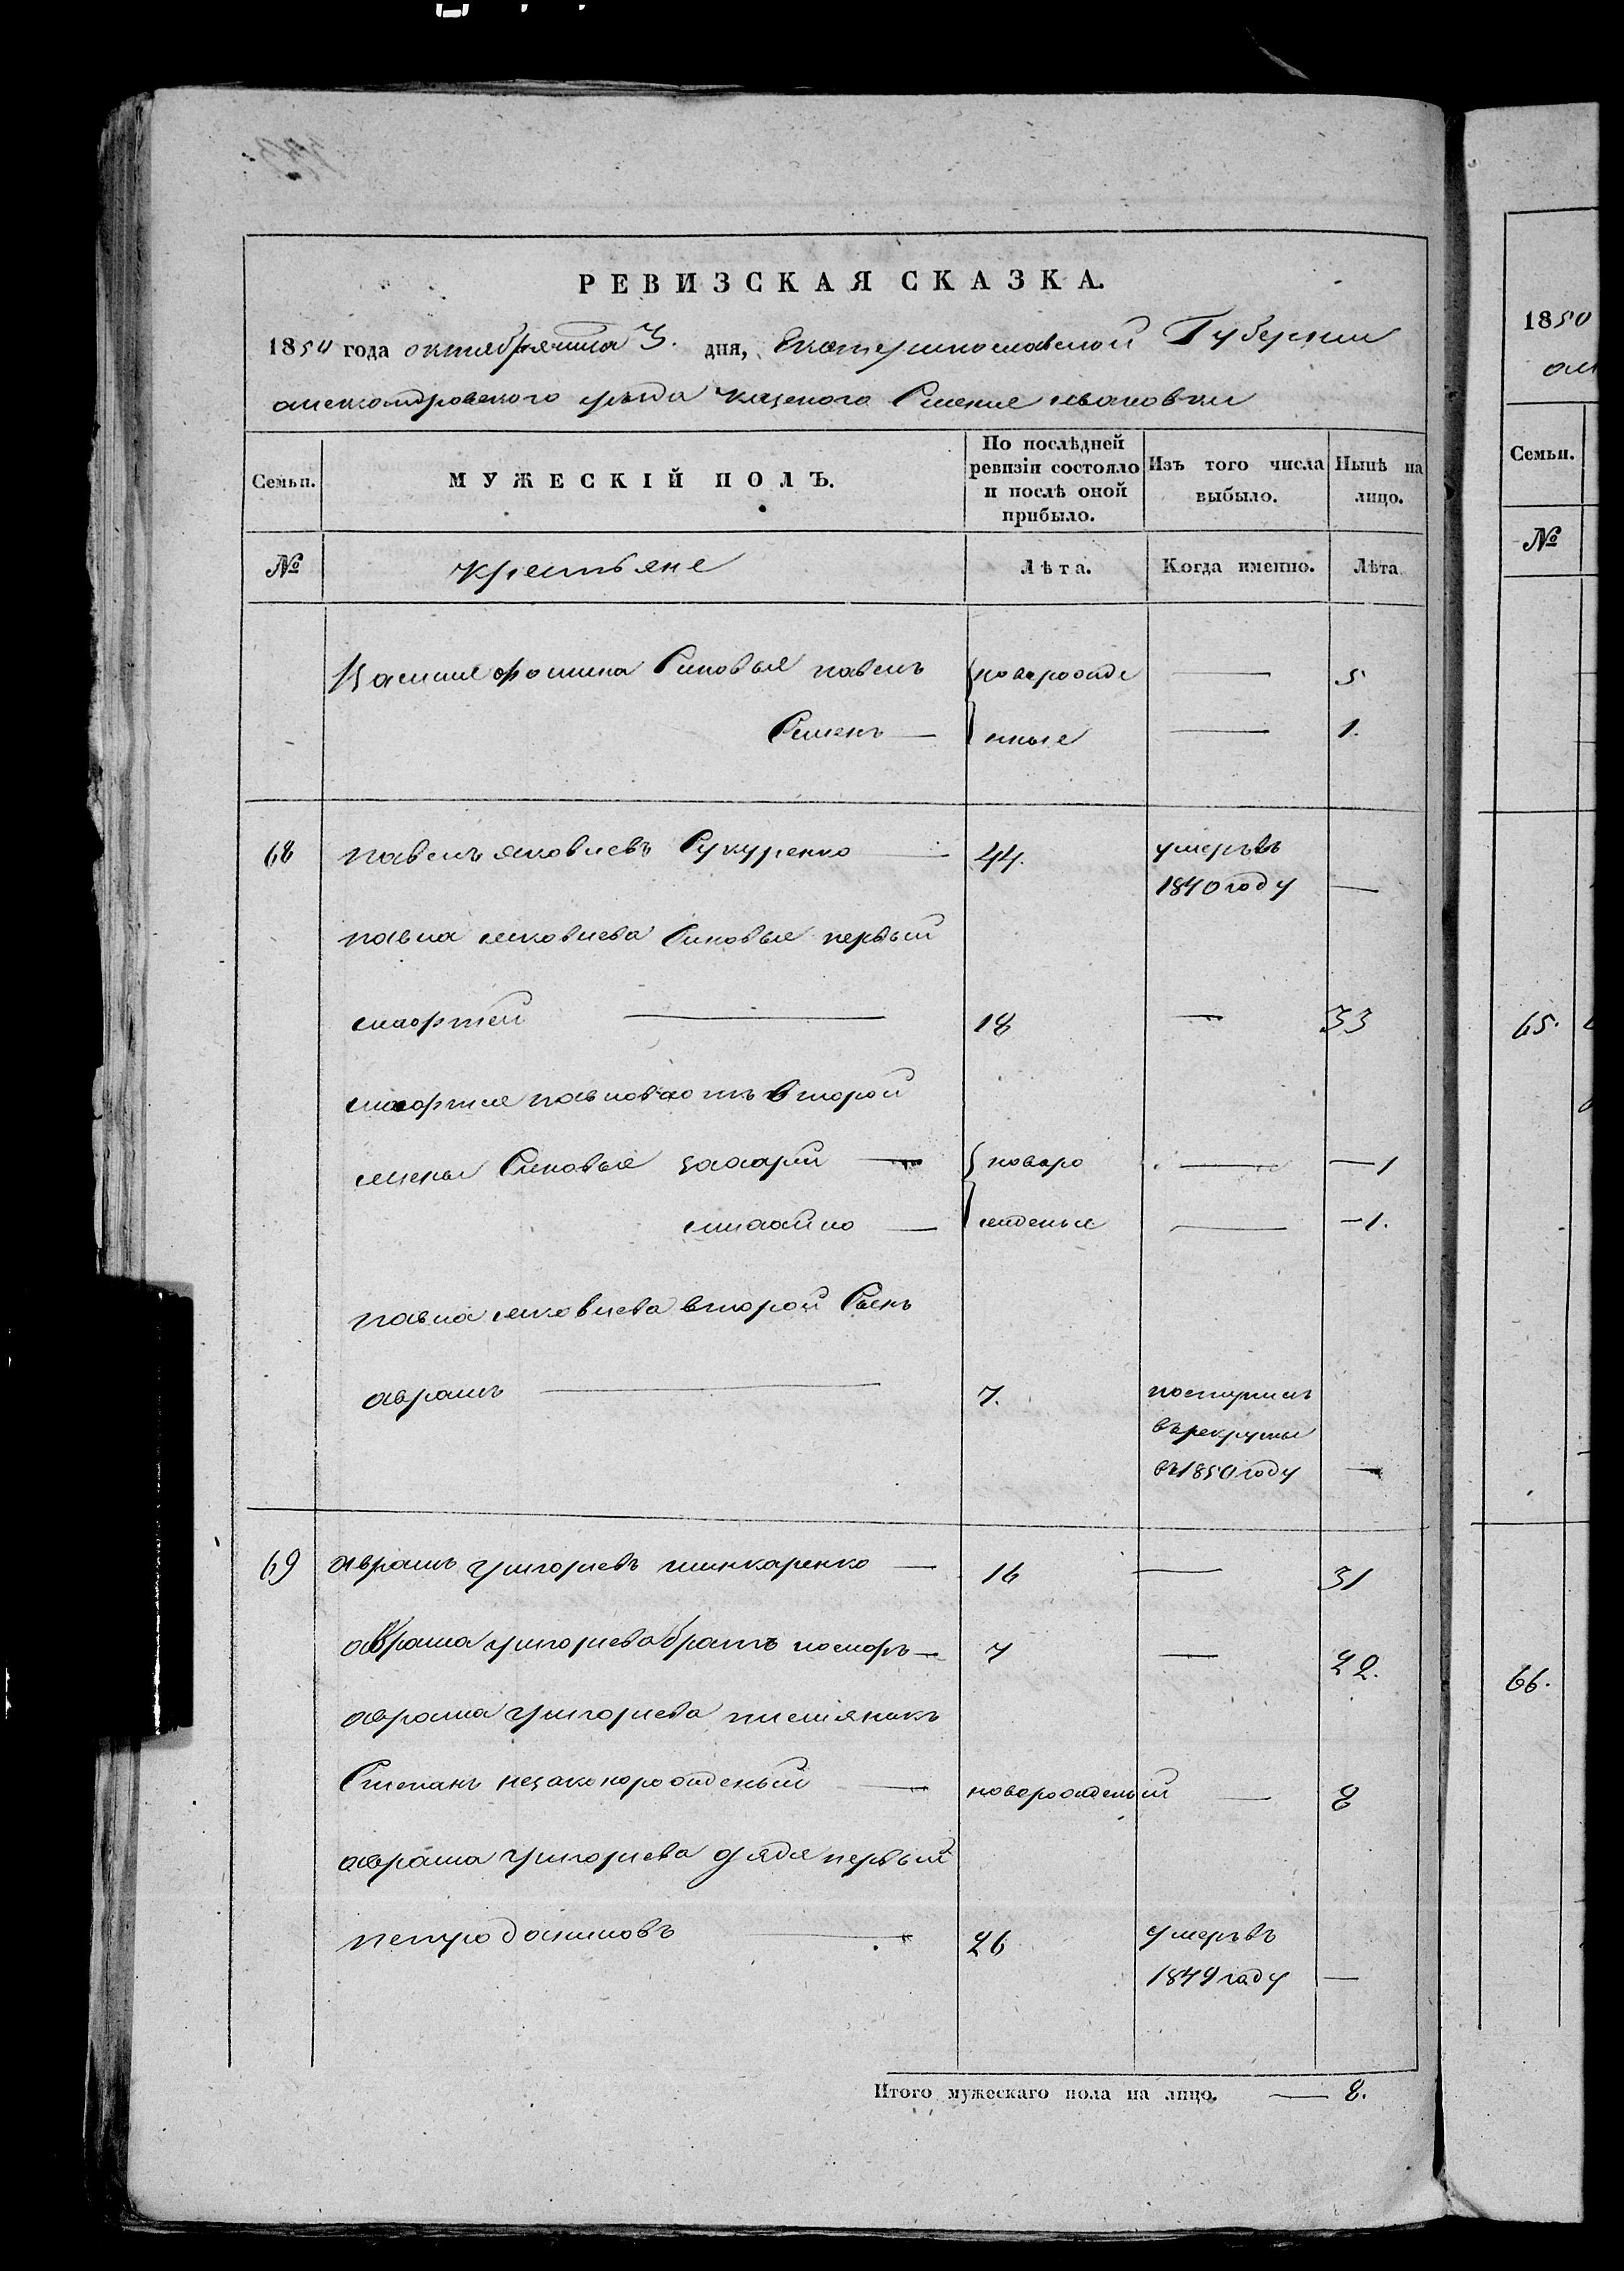 РЕВИЗСКАЯ СКАЗКА.
1850 года октября числа 3. дня, Екатеринославской Губернии
александровского уезда казеного Селения
Семьи. МУЖЕСКІЙ ПОЛЪ. По послѣдней ревизіи состояло и послѣ оной прибыло. Изъ того числа выбыло. Нынѣ на лицо.
№ крестьяне Лѣта. Когда именно. Лѣта
Василия фомина Синовья павелъ новорожде — 5
Семенъ — нные — 1.
68 павелъ яковлевъ Сукуренко — 44. умеръ въ
1840 году —
павла яковлева Синовья первый
18 — 33
второй
жены Синовья захарий — новоро — — 1
михайло — жденые — — 1.
павла яковлева второй Сынъ
аврамъ — 7. поступилъ
в рекруты
въ 1850 году —
69 аврамъ григориевъ шинкаренко — 16 — 31
аврама григориева братъ — 7 — 22.
аврама григориева племяникъ
Степанъ незаконорожденый — новорожденый — 8
аврама григориева дядя первый
петро даниловъ — 26 умеръ въ
1849 году —
Итого мужескаго пола на лицо. — 8.
1850
Семьи.
№
65.
66.